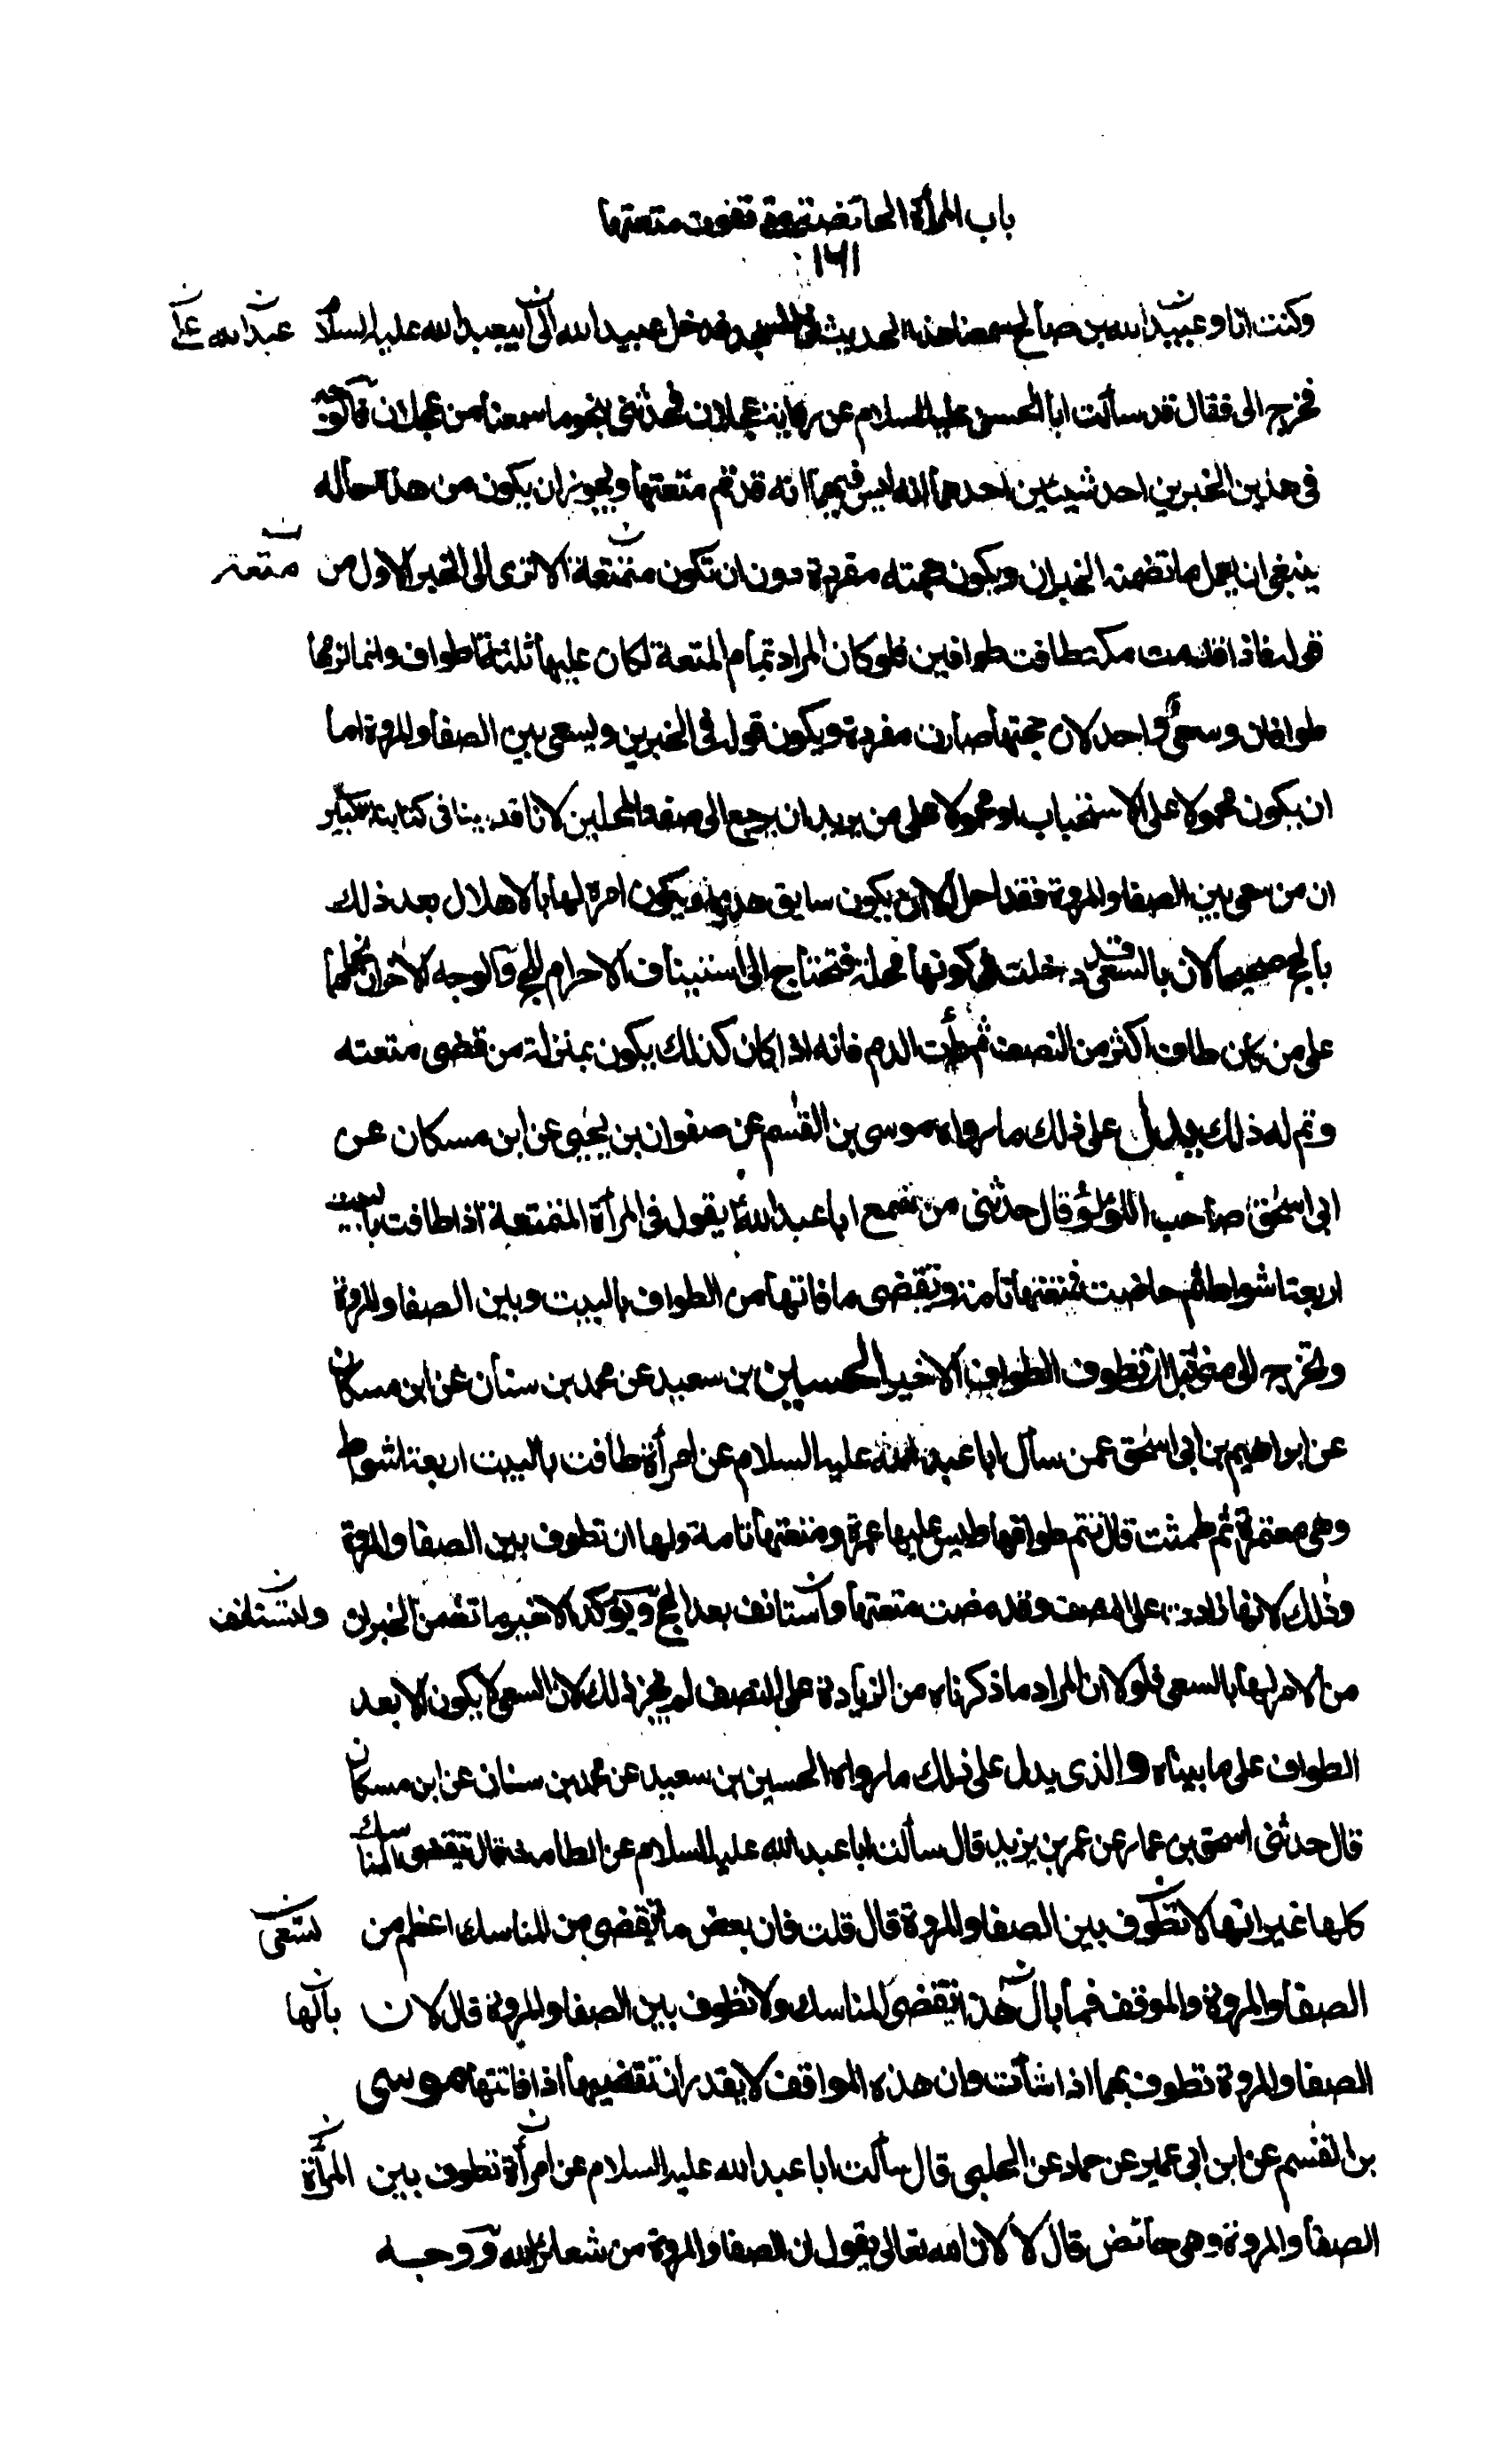 باب المرأة الحائض متى تفوت متعتها
١٦١
وكنت انا وعبيد الله بن صالح سمعنا هذا الحديث في المسجد فدخل عبيد الله الى ابيعبد الله عليه السلام عبد الله على
فخرج الى فقال قد سألت ابا الحسن عليه السلام عن رواية عجلان فحدثني بنحو ما سمعنا من عجلان فالوجه
في هذين الخبرين احد شيئين احدهما انه ليس فيهما انه قد تم متعتها ويجوز ان يكون من هذا حاله
ينبغي ان يعمل ما تضمنه الخبران ويكون حجته مفردة دون ان تكون متمتعة الا ترى الى الخبر الاول من متعته
قوله فاذا قدمت مكة طافت طوافين فلو كان المراد تمام المتعة لكان عليها ثلثة اطواف وانما لزمها
طوافان وسعي واحد لان حجتها صارت مفردة ويكون قوله في الخبرين ويسعى بين الصفا والمروة اما
ان يكون محمولا على الاستحباب او محمولا على من يريد ان يرجع الى صفة المحلين لانا قد بينا في كتابنا الكبير
ان من سعى بين الصفا والمروة فقد احل الا ان يكون سايق هدي ويكون امره لها بالاهلال بعد ذلك
بالحج صحيحا لان بالسعي قد دخلت في كونها محلة فتحتاج الى استيناف الاحرام للحج والوجه الآخر ان نحملهما
على من كان طاف اكثر من النصف ثم رأت الدم فانه اذا كان كذلك يكون بمنزلة من قضى متعته
وتم له ذلك يدل على ذلك ما رواه موسى بن القسم عن صفوان بن يحيى عن ابن مسكان عن
ابي اسحق صاحب اللؤلؤ قال حدثني من سمع ابا عبد الله ع يقول في المرأة المتمتعة اذا طافت بالبيت
اربعة اشواط ثم حاضت فمتعتها تامة وتقضى ما فاتها من الطواف بالبيت وبين الصفا والمروة
وتخرج الى منى قبل ان تطوف الطواف الاخير الحسين بن سعيد عن محمد بن سنان عن ابن مسكان
عن ابراهيم بن ابي اسحق عمن سأل ابا عبد الله عليه السلام عن امرأة طافت بالبيت اربعة اشواط
وهي معتمرة ثم طمثت قال تتم طوافها وليس عليها عمرة ومتعتها تامة ولها ان تطوف بين الصفا والمروة
وذلك لانها زادت على النصف وقد مضت متعتها واستانف بعد الحج ويؤكد الاخير ما تضمن الخبران ولتستانف
من الامر لها بالسعي فلولا ان المراد ما ذكرناه من الزيادة على النصف لم يجز ذلك لان السعي لا يكون الا بعد
الطواف على ما بيناه والذي يدل على ذلك ما رواه الحسين بن سعيد عن محمد بن سنان عن ابن مسكان
قال حدثني اسحق بن عمار عن عمر بن يزيد قال سألت ابا عبد الله عليه السلام عن الطامث قال تقضى المناسك
كلها غير انها لا تطوف بين الصفا والمروة قال قلت فان بعض ما تقضى من المناسك اعظم من تسعى
الصفا والمروة والموقف فما بال هذا تقضى المناسك ولا تطوف بين الصفا والمروة قال لان بالها
الصفا والمروة تطوف بهما اذا شاءت وان هذه المواقف لا يقدر ان تقضيها اذا فاتتها موسى
بن القسم عن ابن ابي عمير عن حماد عن الحلبي قال سألت ابا عبد الله عليه السلام عن امرأة تطوف بين المرأة
الصفا والمروة وهي حائض قال لا لان الله تعالى يقول ان الصفا والمروة من شعائر الله ووجه